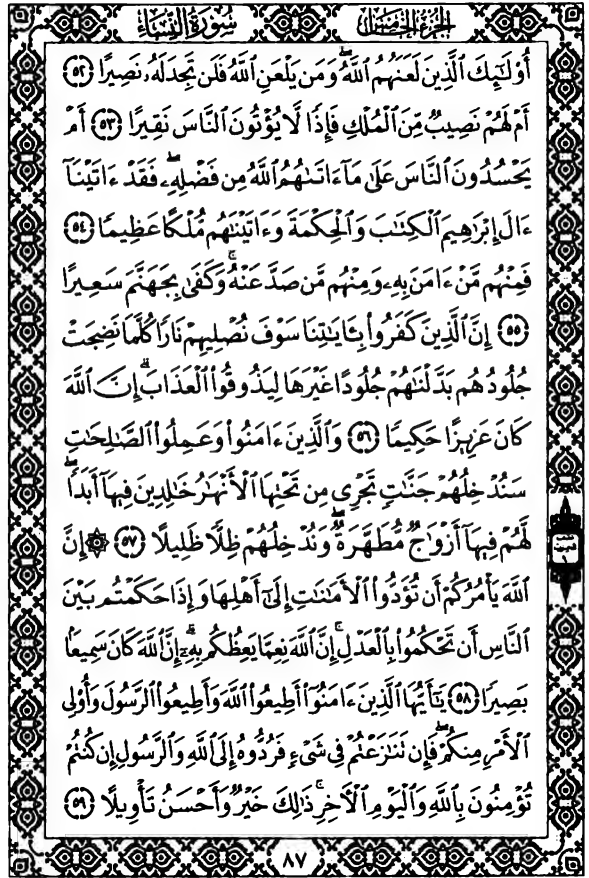 سُورَةُ النِّسَاءِ
الجُزْءُ الخَامِسُ
أُوْلَٰٓئِكَ ٱلَّذِينَ لَعَنَهُمُ ٱللَّهُۖ وَمَن يَلْعَنِ ٱللَّهُ فَلَن تَجِدَ لَهُۥ نَصِيرًا ٥٢
أَمْ لَهُمْ نَصِيبٌ مِّنَ ٱلْمُلْكِ فَإِذًا لَّا يُؤْتُونَ ٱلنَّاسَ نَقِيرًا ٥٣ أَمْ
يَحْسُدُونَ ٱلنَّاسَ عَلَىٰ مَآ ءَاتَىٰهُمُ ٱللَّهُ مِن فَضْلِهِۦۖ فَقَدْ ءَاتَيْنَآ
ءَالَ إِبْرَٰهِيمَ ٱلْكِتَٰبَ وَٱلْحِكْمَةَ وَءَاتَيْنَٰهُم مُّلْكًا عَظِيمًا ٥٤
فَمِنْهُم مَّنْ ءَامَنَ بِهِۦ وَمِنْهُم مَّن صَدَّ عَنْهُۚ وَكَفَىٰ بِجَهَنَّمَ سَعِيرًا
٥٥ إِنَّ ٱلَّذِينَ كَفَرُوا۟ بِـَٔايَٰتِنَا سَوْفَ نُصْلِيهِمْ نَارًا كُلَّمَا نَضِجَتْ
جُلُودُهُم بَدَّلْنَٰهُمْ جُلُودًا غَيْرَهَا لِيَذُوقُوا۟ ٱلْعَذَابَۗ إِنَّ ٱللَّهَ
كَانَ عَزِيزًا حَكِيمًا ٥٦ وَٱلَّذِينَ ءَامَنُوا۟ وَعَمِلُوا۟ ٱلصَّٰلِحَٰتِ
سَنُدْخِلُهُمْ جَنَّٰتٍ تَجْرِى مِن تَحْتِهَا ٱلْأَنْهَٰرُ خَٰلِدِينَ فِيهَآ أَبَدًاۖ
لَّهُمْ فِيهَآ أَزْوَٰجٌ مُّطَهَّرَةٌۖ وَنُدْخِلُهُمْ ظِلًّا ظَلِيلًا ٥٧ ۞ إِنَّ
ٱللَّهَ يَأْمُرُكُمْ أَن تُؤَدُّوا۟ ٱلْأَمَٰنَٰتِ إِلَىٰٓ أَهْلِهَا وَإِذَا حَكَمْتُم بَيْنَ
ٱلنَّاسِ أَن تَحْكُمُوا۟ بِٱلْعَدْلِۚ إِنَّ ٱللَّهَ نِعِمَّا يَعِظُكُم بِهِۦٓۗ إِنَّ ٱللَّهَ كَانَ سَمِيعًۢا
بَصِيرًا ٥٨ يَٰٓأَيُّهَا ٱلَّذِينَ ءَامَنُوٓا۟ أَطِيعُوا۟ ٱللَّهَ وَأَطِيعُوا۟ ٱلرَّسُولَ وَأُو۟لِى
ٱلْأَمْرِ مِنكُمْۖ فَإِن تَنَٰزَعْتُمْ فِى شَىْءٍ فَرُدُّوهُ إِلَى ٱللَّهِ وَٱلرَّسُولِ إِن كُنتُمْ
تُؤْمِنُونَ بِٱللَّهِ وَٱلْيَوْمِ ٱلْـَٔاخِرِۚ ذَٰلِكَ خَيْرٌ وَأَحْسَنُ تَأْوِيلًا ٥٩
٨٧